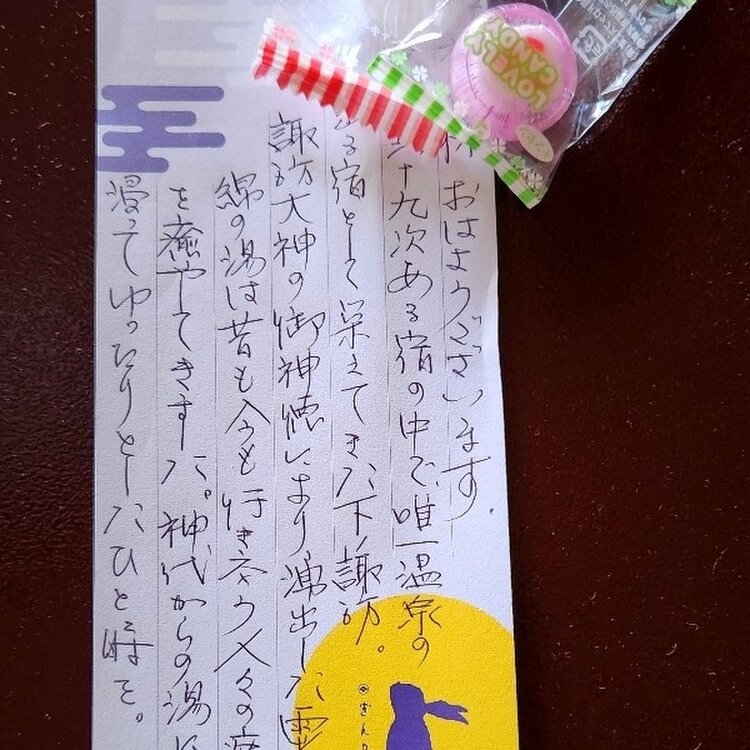 LOVELY
CANDY
おはようございます.
十九次ある宿の中で、唯一温泉の
る宿として栄えてきた下ノ諏訪。
諏訪大神の御神徳により湧出した
綿の湯は昔も今も行き交う人々の
を癒やしてきました。神代からの湯に
浸ってゆったりとしたひと時を。